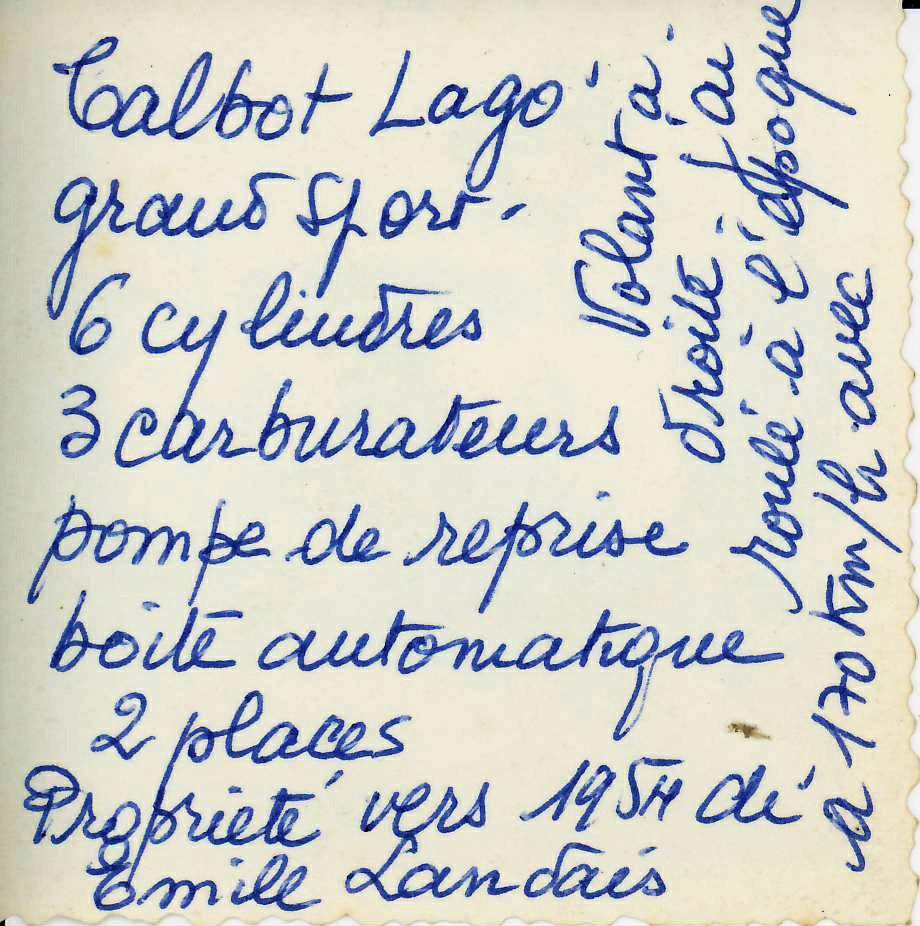 Talbot Lago
grand Sport.
6 cylindres
3 carburateurs
pompe de reprise
boite automatique
2 places
Propriété vers 1954 de
Emile Landais
Volant à
droite j'ai
roulé à l'époque
a 170 km/h avec